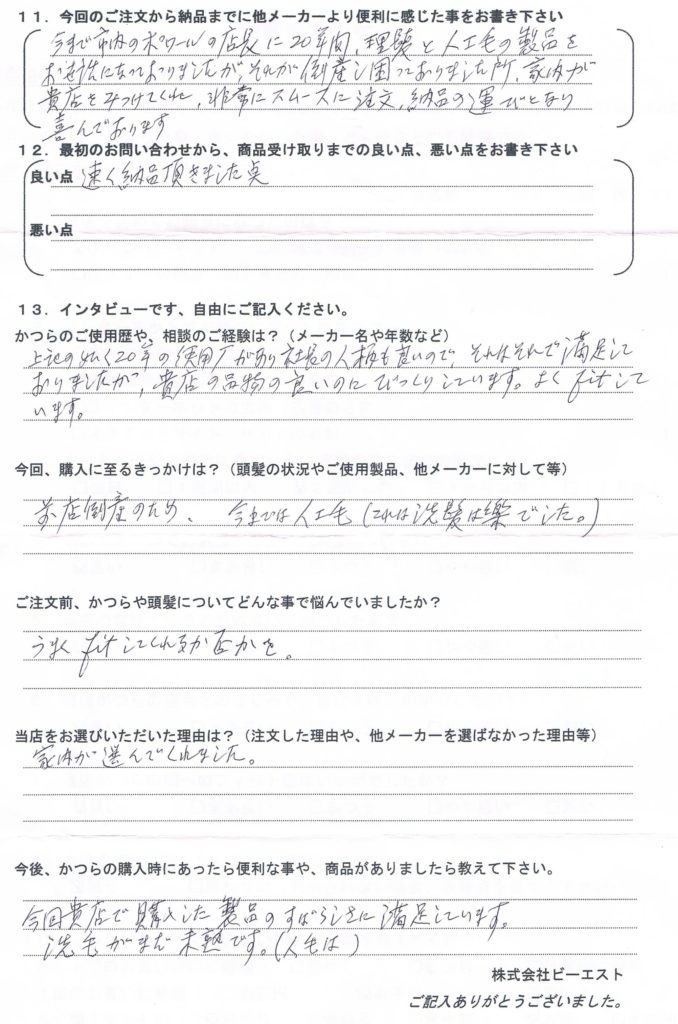 １１．今回のご注文から納品までに他メーカーより便利に感じた事をお書き下さい
今まで市内のボワールの店長に20年間、理髪と人工毛の製品を
お世話になっておりましたが、それが倒産し困っておりました所、家内が
貴店をみつけてくれ、非常にスムースに注文、納品の運びとなり
喜んでおります
１２．最初のお問い合わせから、商品受け取りまでの良い点、悪い点をお書き下さい
良い点 速く納品頂きました点
悪い点
１３．インタビューです、自由にご記入ください。
かつらのご使用歴や、相談のご経験は？（メーカー名や年数など）
上記の如く20年の使用があり社長の人柄も良いので、それはそれで満足して
おりましたが、貴店の品物の良いのにびっくりしています。よくfitして
います。
今回、購入に至るきっかけは？（頭髪の状況やご使用製品、他メーカーに対して等）
店倒産のため、 今までは人工毛（これは洗髪は楽でした。）
ご注文前、かつらや頭髪についてどんな事で悩んでいましたか？
うまくfitしてくれるか否かを。
当店をお選びいただいた理由は？（注文した理由や、他メーカーを選ばなかった理由等）
家内が選んでくれました。
今後、かつらの購入時にあったら便利な事や、商品がありましたら教えて下さい。
今回貴店で購入した製品のすばらしさに満足しています。
洗毛がまだ未熟です。（人毛は）
株式会社ビーエスト
ご記入ありがとうございました。